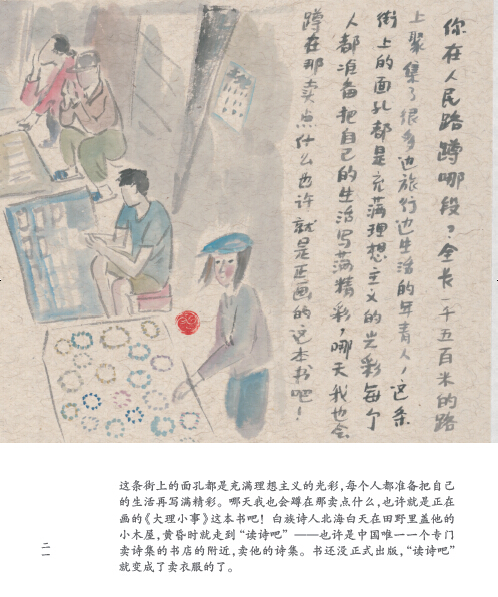 你在人民路蹲哪段？全长一千五百米的路
上聚集了很多边旅行边生活的年青人，这条
街上的面孔都是充满理想主义的光彩每个
人都准备把自己的生活写满精彩，哪天我也会
蹲在那卖点什么也许就是正画的这本书吧！
这条街上的面孔都是充满理想主义的光彩，每个人都准备把自己
的生活再写满精彩。哪天我也会蹲在那卖点什么，也许就是正在
画的《大理小事》这本书吧！白族诗人北海白天在田野里盖他的
小木屋，黄昏时就走到“读诗吧”——也许是中国唯一一个专门
卖诗集的书店的附近，卖他的诗集。书还没正式出版，“读诗吧”
就变成了卖衣服的了。
二一